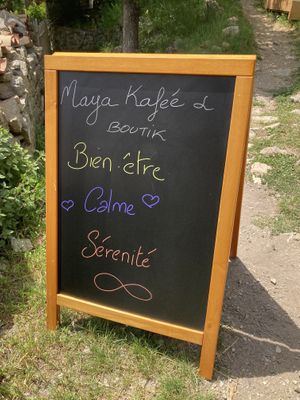 Maya Kafée &
BOUTIK
Bien-être
Calme
Sérénité